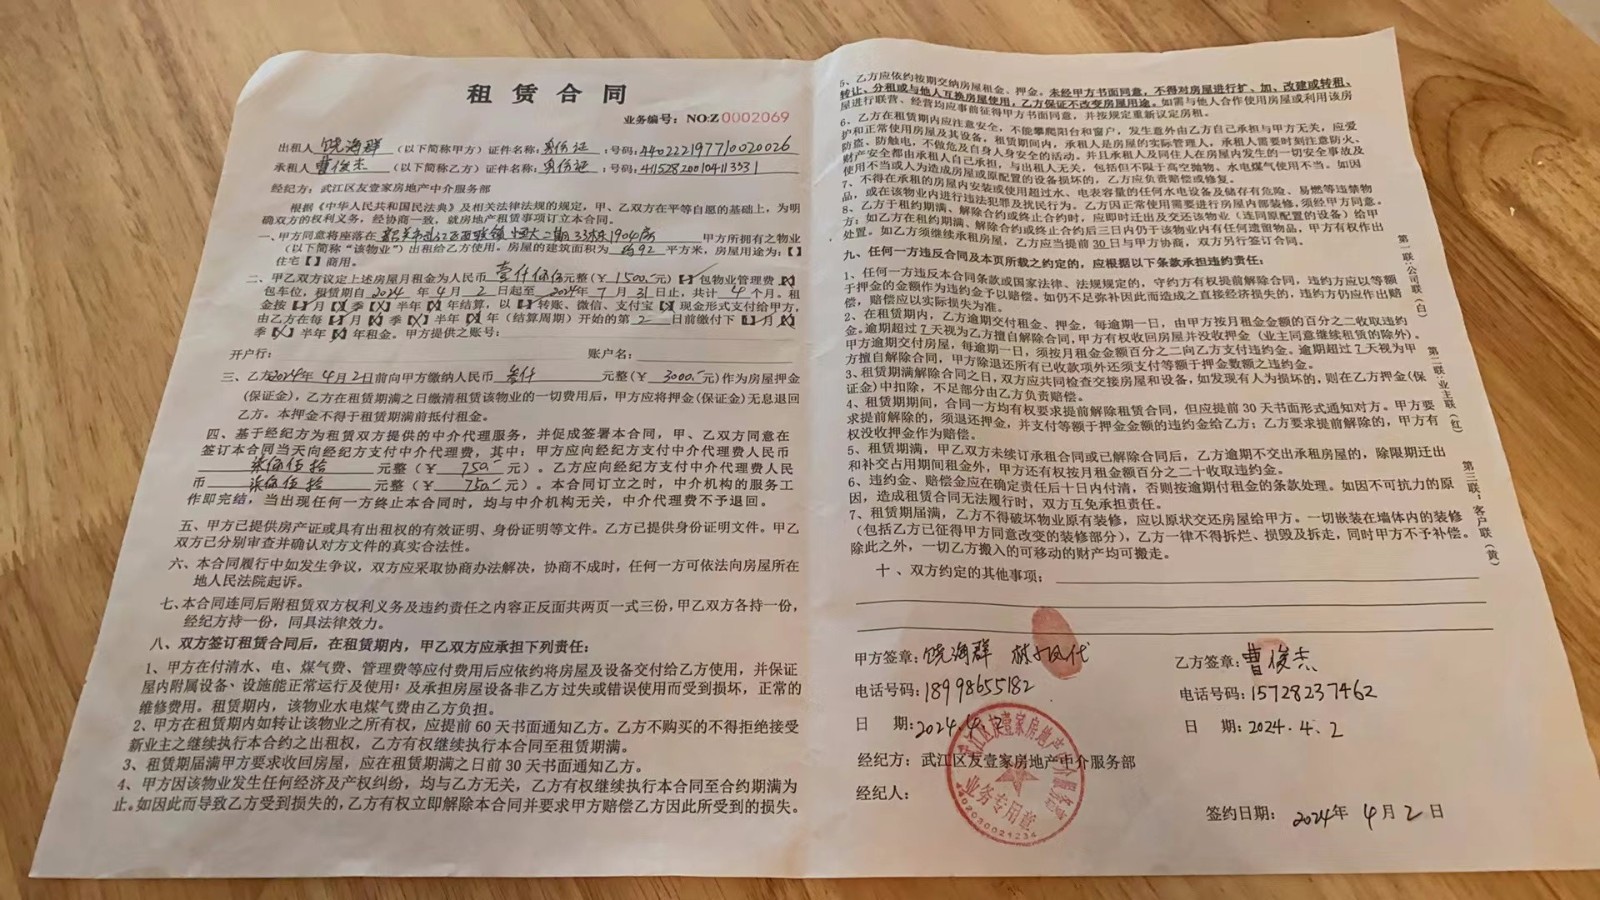 租赁合同
业务编号：NO:Z 0002069
出租人 饶海群 （以下简称甲方）证件名称：身份证 ：号码：440222197710020026
承租人 曹俊杰 （以下简称乙方）证件名称：身份证 ：号码：411528200104113331
经纪方：武江区友壹家房地产中介服务部
根据《中华人民共和国民法典》及相关法律法规的规定，甲、乙双方在平等自愿的基础上，为明
确双方的权利义务，经协商一致，就房地产租赁事项订立本合同。
一、甲方同意将座落在 韶关市武江区西联镇恒大二期33栋1904房 甲方所拥有之物业
（以下简称“该物业”）出租给乙方使用。房屋的建筑面积为 约92 平方米，房屋用途为：【 】
住宅【 】商用。
二、甲乙双方议定上述房屋月租金为人民币 壹仟伍佰 元整（￥1500.元）【 】包物业管理费【X】
包车位，租赁期自 2024 年 4 月 2 日起至 2024年 7 月 31 日止，共计 4 个月。租
金按【 】月【X】季【X】半年【X】年结算，以【 】转账、微信、支付宝【X】现金形式支付给甲方，
由乙方在每【 】月【X】季【X】半年【X】年（结算周期）开始的第 2 日前缴付下【 】月【X】
季【X】半年【X】年租金。甲方提供之账号：
开户行： 账户名：
三、乙方2024年4月2日前向甲方缴纳人民币 叁仟 元整（￥ 3000.元）作为房屋押金
（保证金），乙方在租赁期满之日缴清租赁该物业的一切费用后，甲方应将押金（保证金）无息退回
乙方。本押金不得于租赁期满前抵付租金。
四、基于经纪方为租赁双方提供的中介代理服务，并促成签署本合同，甲、乙双方同意在
签订本合同当天向经纪方支付中介代理费，其中：甲方应向经纪方支付中介代理费人民币
柒佰伍拾 元整（￥ 750.- 元）。乙方应向经纪方支付中介代理费人民
币 柒佰伍拾 元整（￥ 750.- 元）。本合同订立之时，中介机构的服务工
作即完结，当出现任何一方终止本合同时，均与中介机构无关，中介代理费不予退回。
五、甲方已提供房产证或具有出租权的有效证明、身份证明等文件。乙方已提供身份证明文件。甲乙
双方已分别审查并确认对方文件的真实合法性。
六、本合同履行中如发生争议，双方应采取协商办法解决，协商不成时，任何一方可依法向房屋所在
地人民法院起诉。
七、本合同连同后附租赁双方权利义务及违约责任之内容正反面共两页一式三份，甲乙双方各持一份，
经纪方持一份，同具法律效力。
八、双方签订租赁合同后，在租赁期内，甲乙双方应承担下列责任：
1、甲方在付清水、电、煤气费、管理费等应付费用后应依约将房屋及设备交付给乙方使用，并保证
屋内附属设备、设施能正常运行及使用；及承担房屋设备非乙方过失或错误使用而受到损坏，正常的
维修费用。租赁期内，该物业水电煤气费由乙方负担。
2、甲方在租赁期内如转让该物业之所有权，应提前 60 天书面通知乙方。乙方不购买的不得拒绝接受
新业主之继续执行本合约之出租权，乙方有权继续执行本合同至租赁期满。
3、租赁期届满甲方要求收回房屋，应在租赁期满之日前 30 天书面通知乙方。
4、甲方因该物业发生任何经济及产权纠纷，均与乙方无关，乙方有权继续执行本合同至合约期满为
止。如因此而导致乙方受到损失的，乙方有权立即解除本合同并要求甲方赔偿乙方因此所受到的损失。
5、乙方应依约按期交纳房屋租金、押金。未经甲方书面同意，不得对房屋进行扩、加、改建或转租、
转让、分租或与他人互换房屋使用，乙方保证不改变房屋用途。如需与他人合作使用房屋或利用该房
屋进行联营、经营均应事前征得甲方书面同意，并按规定重新议定房租。
6、乙方在租赁期内应注意安全，不能攀爬阳台和窗户，发生意外由乙方自己承担与甲方无关，应爱
护和正常使用房屋及其设备，租赁期间内，承租人是房屋的实际管理人，承租人需要时刻注意防火、
防盗、防触电，不做危及自身人身安全的活动。并且承租人及同住人在房屋内发生的一切安全事故及
财产安全都由承租人自己承担，与出租人无关，包括但不限于高空抛物、水电煤气使用不当。如因
使用不当或人为造成房屋或原配置的设备损坏的，乙方应负责赔偿或修复。
7、不得在承租的房屋内安装或使用超过水、电表容量的任何水电设备及储存有危险、易燃等违禁物
品，或在该物业内进行违法犯罪及扰民行为。乙方因正常使用需要进行房屋内部装修，须经甲方同意。
8、乙方于租约期满、解除合约或终止合约时，应即时迁出及交还该物业（连同原配置的设备）给甲
方；如乙方在租约期满、解除合约或终止合约后三日内仍于该物业内有任何遗留物品，甲方有权作出
处置。如乙方须继续承租房屋，乙方应当提前 30 日与甲方协商，双方另行签订合同。
九、任何一方违反合同及本页所载之约定的，应根据以下条款承担违约责任：
1、任何一方违反本合同条款或国家法律、法规规定的，守约方有权提前解除合同，违约方应以等额
于押金的金额作为违约金予以赔偿。如仍不足弥补因此而造成之直接经济损失的，违约方仍应作出赔
偿，赔偿应以实际损失为准。
2、在租赁期内，乙方逾期交付租金、押金，每逾期一日，由甲方按月租金金额的百分之二收取违约
金。逾期超过 7 天视为乙方擅自解除合同，甲方有权收回房屋并没收押金（业主同意继续租赁的除外）。
甲方逾期交付房屋，每逾期一日，须按月租金金额百分之二向乙方支付违约金。逾期超过 7 天视为甲
方擅自解除合同，甲方除退还所有已收款项外还须支付等额于押金数额之违约金。
3、租赁期满解除合同之日，双方应共同检查交接房屋和设备，如发现有人为损坏的，则在乙方押金（保
证金）中扣除，不足部分由乙方负责赔偿。
4、租赁期期间，合同一方均有权要求提前解除租赁合同，但应提前 30 天书面形式通知对方。甲方要
求提前解除的，须退还押金，并支付等额于押金金额的违约金给乙方；乙方要求提前解除的，甲方有
权没收押金作为赔偿。
5、租赁期满，甲甲乙双方未续订承租合同或已解除合同后，乙方逾期不交出承租房屋的，除限期迁出
和补交占用期间租金外，甲方还有权按月租金额百分之二十收取违约金。
6、违约金、赔偿金应在确定责任后十日内付清，否则按逾期付租金的条款处理。如因不可抗力的原
因，造成租赁合同无法履行时，双方互免承担责任。
7、租赁期届满，乙方不得破坏物业原有装修，应以原状交还房屋给甲方。一切嵌装在墙体内的装修
（包括乙方已征得甲方同意改变的装修部分），乙方一律不得拆烂、损毁及拆走，同时甲方不予补偿。
除此之外，一切乙方搬入的可移动的财产均可搬走。
十、双方约定的其他事项：
第一联：公司联（白）
第二联：业主联（红）
第三联：客户联（黄）
甲方签章：饶海群
乙方签章：曹俊杰
电话号码：18998655182
电话号码：15728237462
日 期：2024.4.2
日 期：2024.4.2
经纪方：武江区友壹家房地产中介服务部
经纪人：
武江区友壹家房地产中介服务部
业务专用章
签约日期：2024年 4 月 2 日